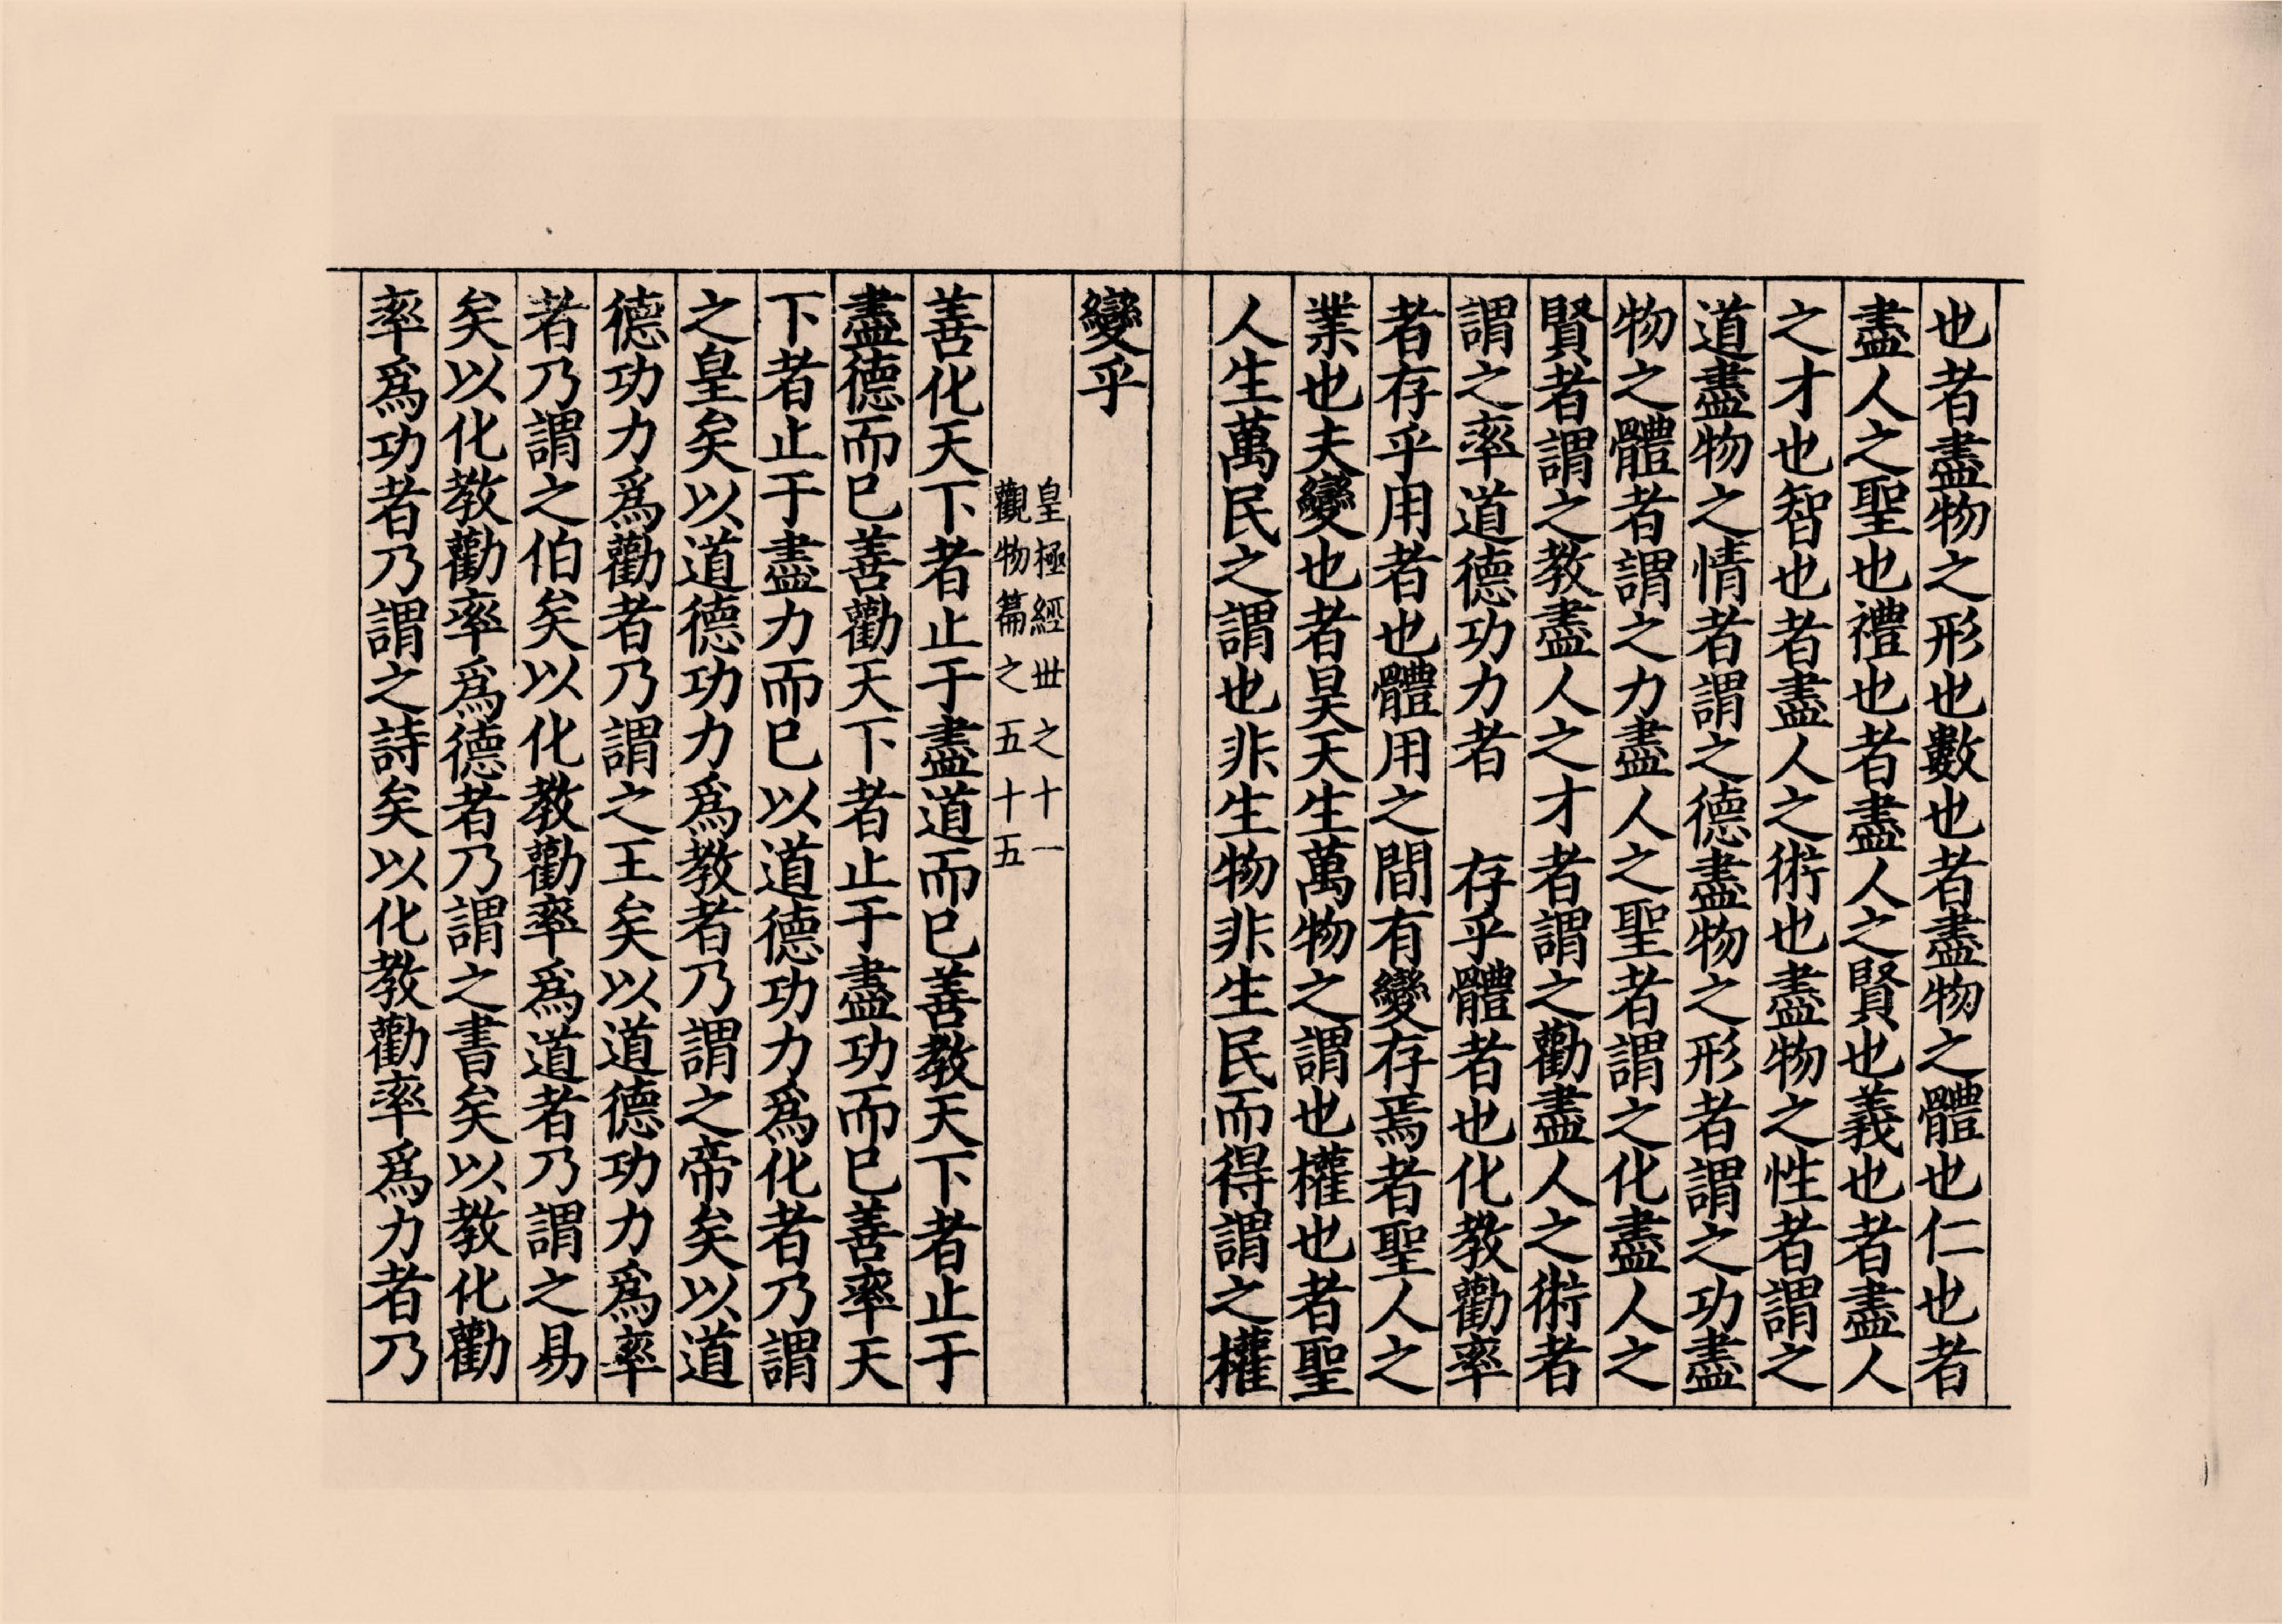 也者盡物之形也數也者盡物之體也仁也者
盡人之聖也禮也者盡人之賢也義也者盡人
之才也智也者盡人之術也盡物之性者謂之
道盡物之情者謂之德盡物之形者謂之功盡
物之體者謂之力盡人之聖者謂之化盡人之
賢者謂之教盡人之才者謂之勸盡人之術者
謂之率道德功力者　存乎體者也化教勸率
者存乎用者也體用之間有變存焉者聖人之
業也夫變也者昊天生萬物之謂也權也者聖
人生萬民之謂也非生物非生民而得謂之權
變乎
皇極經丗之十一
觀物篇之五十五
善化天下者止于盡道而已善教天下者止于
盡德而已善勸天下者止于盡功而已善率天
下者止于盡力而已以道德功力爲化者乃謂
之皇矣以道德功力爲教者乃謂之帝矣以道
德功力爲勸者乃謂之王矣以道德功力爲率
者乃謂之伯矣以化教勸率爲道者乃謂之易
矣以化教勸率爲德者乃謂之書矣以教化勸
率爲功者乃謂之詩矣以化教勸率爲力者乃